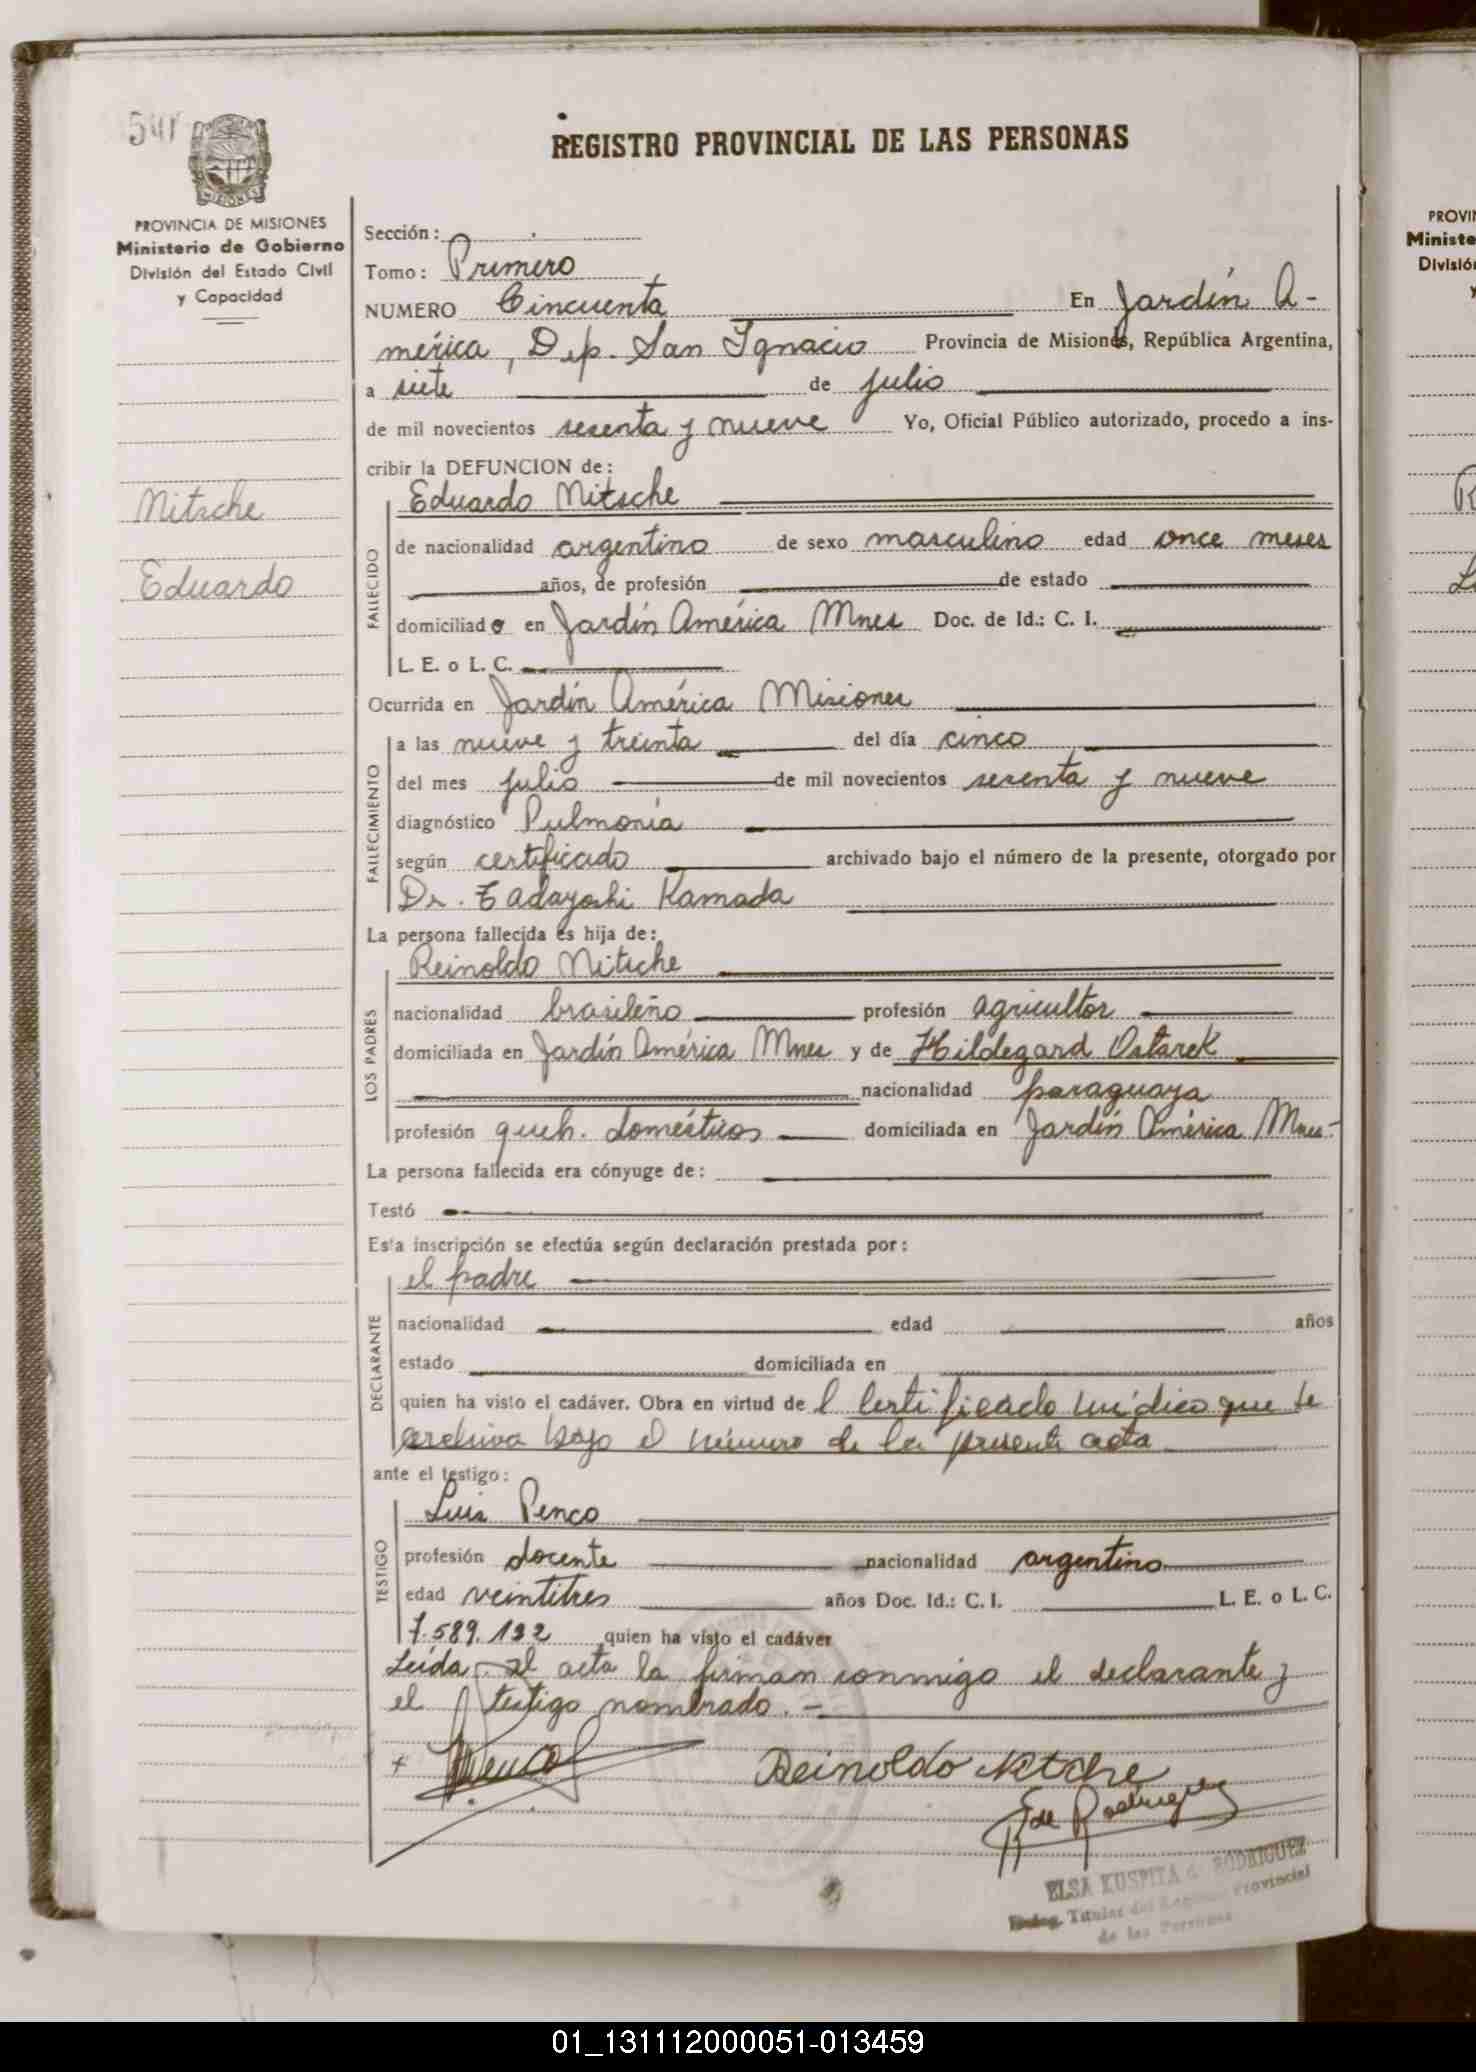 REGISTRO PROVINCIAL DE LAS PERSONAS
MISIONES
PROVINCIA DE MISIONES
Ministerio de Gobierno
División del Estado Civil
y Capacidad
Nitsche
Eduardo
Sección:
Tomo: Primero
NUMERO Cincuenta En Jardín A-
mérica, Dep. San Ignacio Provincia de Misiones, República Argentina,
a siete de julio
de mil novecientos sesenta y nueve Yo, Oficial Público autorizado, procedo a ins-
cribir la DEFUNCION de:
Eduardo Nitsche
FALLECIDO
de nacionalidad argentino de sexo masculino edad once meses
años, de profesión de estado
domiciliado en Jardín América Mnes Doc. de Id.: C. I.
L. E. o L. C.
Ocurrida en Jardín América Misiones
FALLECIMIENTO
a las nueve y treinta del día cinco
del mes julio de mil novecientos sesenta y nueve
diagnóstico Pulmonía
según certificado archivado bajo el número de la presente, otorgado por
Dr. Tadayoshi Kamada
La persona fallecida es hija de:
Reinoldo Nitsche
LOS PADRES
nacionalidad brasileño profesión agricultor
domiciliada en Jardín América Mnes y de Hildegard Ostarek
nacionalidad paraguaya
profesión queh. domésticos domiciliada en Jardín América Mnes-
La persona fallecida era cónyuge de:
Testó
Esta inscripción se efectúa según declaración prestada por:
el padre
DECLARANTE
nacionalidad edad años
estado domiciliada en
quien ha visto el cadáver. Obra en virtud de l certificado médico que se
archiva bajo el número de la presente acta
ante el testigo:
Luis Penco
TESTIGO
profesión docente nacionalidad argentino
edad veintitres años Doc. Id.: C. I. L. E. o L. C.
7.589.132 quien ha visto el cadáver
Leída el acta la firman conmigo el declarante y
el testigo nombrado. -
Penco
Reinoldo Nitsche
de Rodriguez
ELSA KUSPITA de RODRIGUEZ
Titular del Provincial
de las Personas
PROVIN
Ministe
División
y
01_131112000051-013459